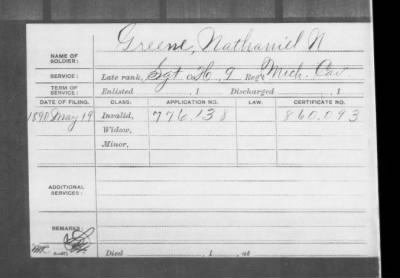 Greene, Nathaniel N
NAME OF SOLDIER:
SERVICE: Late rank, Sgt Co. H, 7 Reg't Mich. Cav
TERM OF SERVICE: Enlisted , 1 Discharged , 1
DATE OF FILING. CLASS. APPLICATION NO. LAW. CERTIFICATE NO.
1890 May 19 Invalid, 776.138 860.093
Widow,
Minor,
ADDITIONAL SERVICES:
REMARKS:
Died , 1 , at